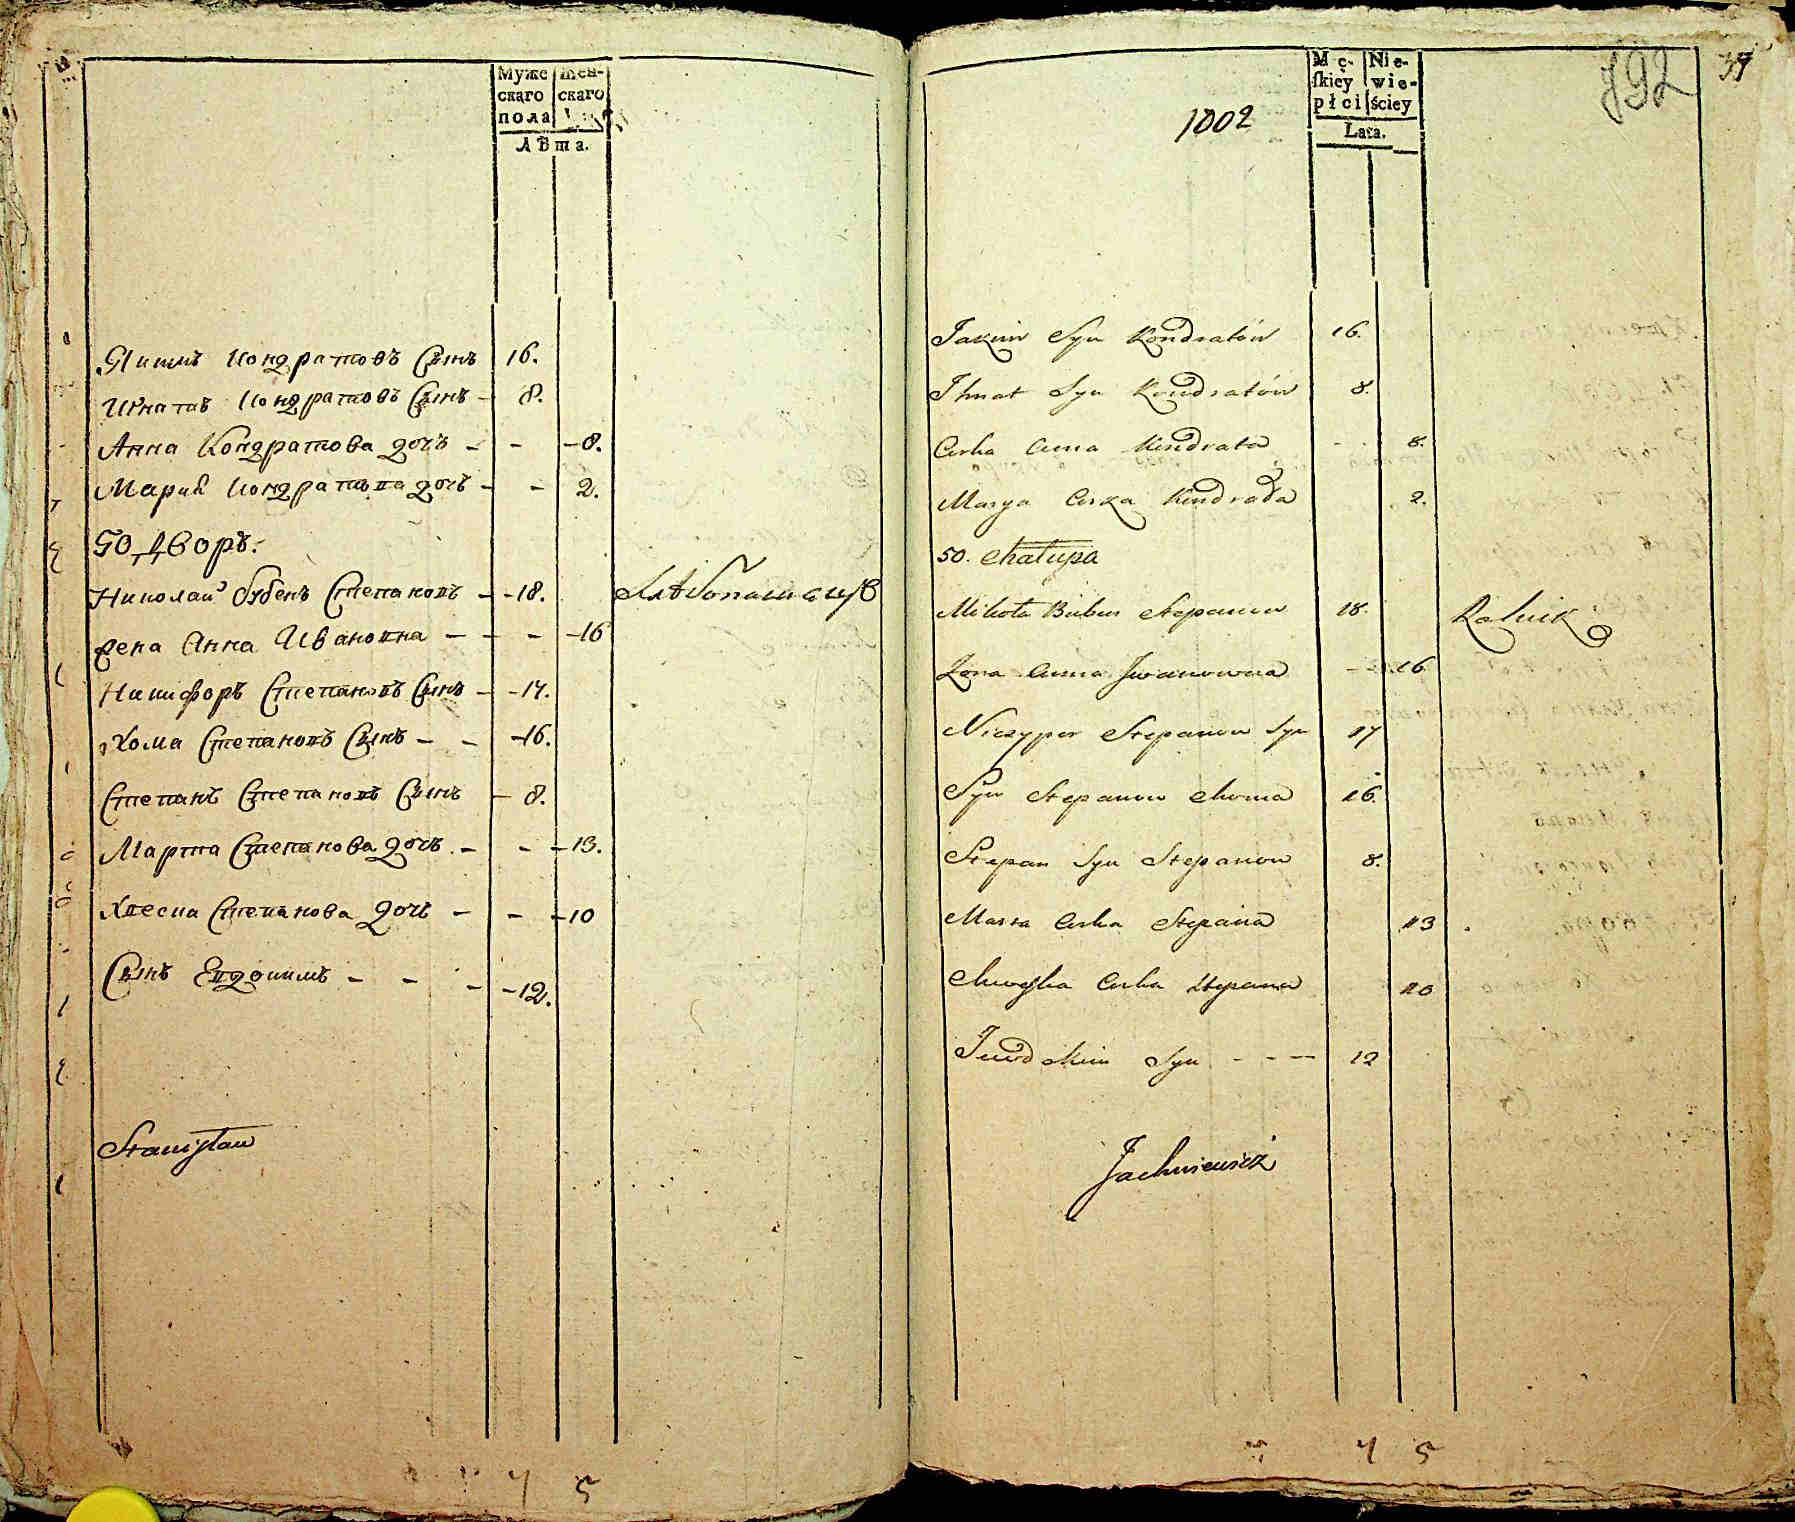 Муже Жен-
скаго скаго
пола
Лѣта.
Якимъ Кондратовъ Сынъ 16.
Игнатъ Кондратовъ Сынъ - 8.
Анна Кондратова дочь - - - 8.
Мария Кондратова дочь - - 2.
50 Дворъ.
Николай Бубенъ Степановъ - - 18.
жена Анна Ивановна - - - - 16
Никифоръ Степановъ Сынъ - - 17.
Хома Степановъ Сынъ - - - 16.
Степанъ Степановъ Сынъ - 8.
Марта Степанова дочь - - - 13.
Хвеска Степанова дочь - - - 10
Сынъ Евдокимъ - - - - 12.
Stanisław
7 5
792 39
Mę- Nie-
skiey wie-
płci ściey
Lata.
1002
Jakim Syn Kondratów 16.
Ihnat Syn Kondratów 8.
Corka Anna Kindrata - - 8.
Marya Corka Kindrada 2.
50. Chałupa
Mikoła Buben Stepanow 18. Rolnik
Zona Anna Iwanowna - 16
Niczypor Stepanow Syn 17
Syn Stepanow Choma 16.
Stepan Syn Stepanow 8.
Marta Corka Stepana 13
Chweska Corka Stepana 10
Juwdokim Syn - - - 12
Jachniewicz
7 5